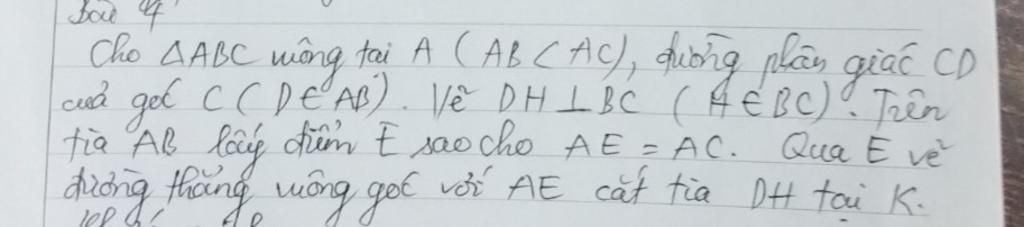 Bài 4
Cho ΔABC vuông tại A (AB < AC), đường phân giác CD
của góc C (D ∈ AB). Vẽ DH ⊥ BC (H ∈ BC). Trên
tia AB lấy điểm E sao cho AE = AC. Qua E vẽ
đường thẳng vuông góc với AE cắt tia DH tại K.